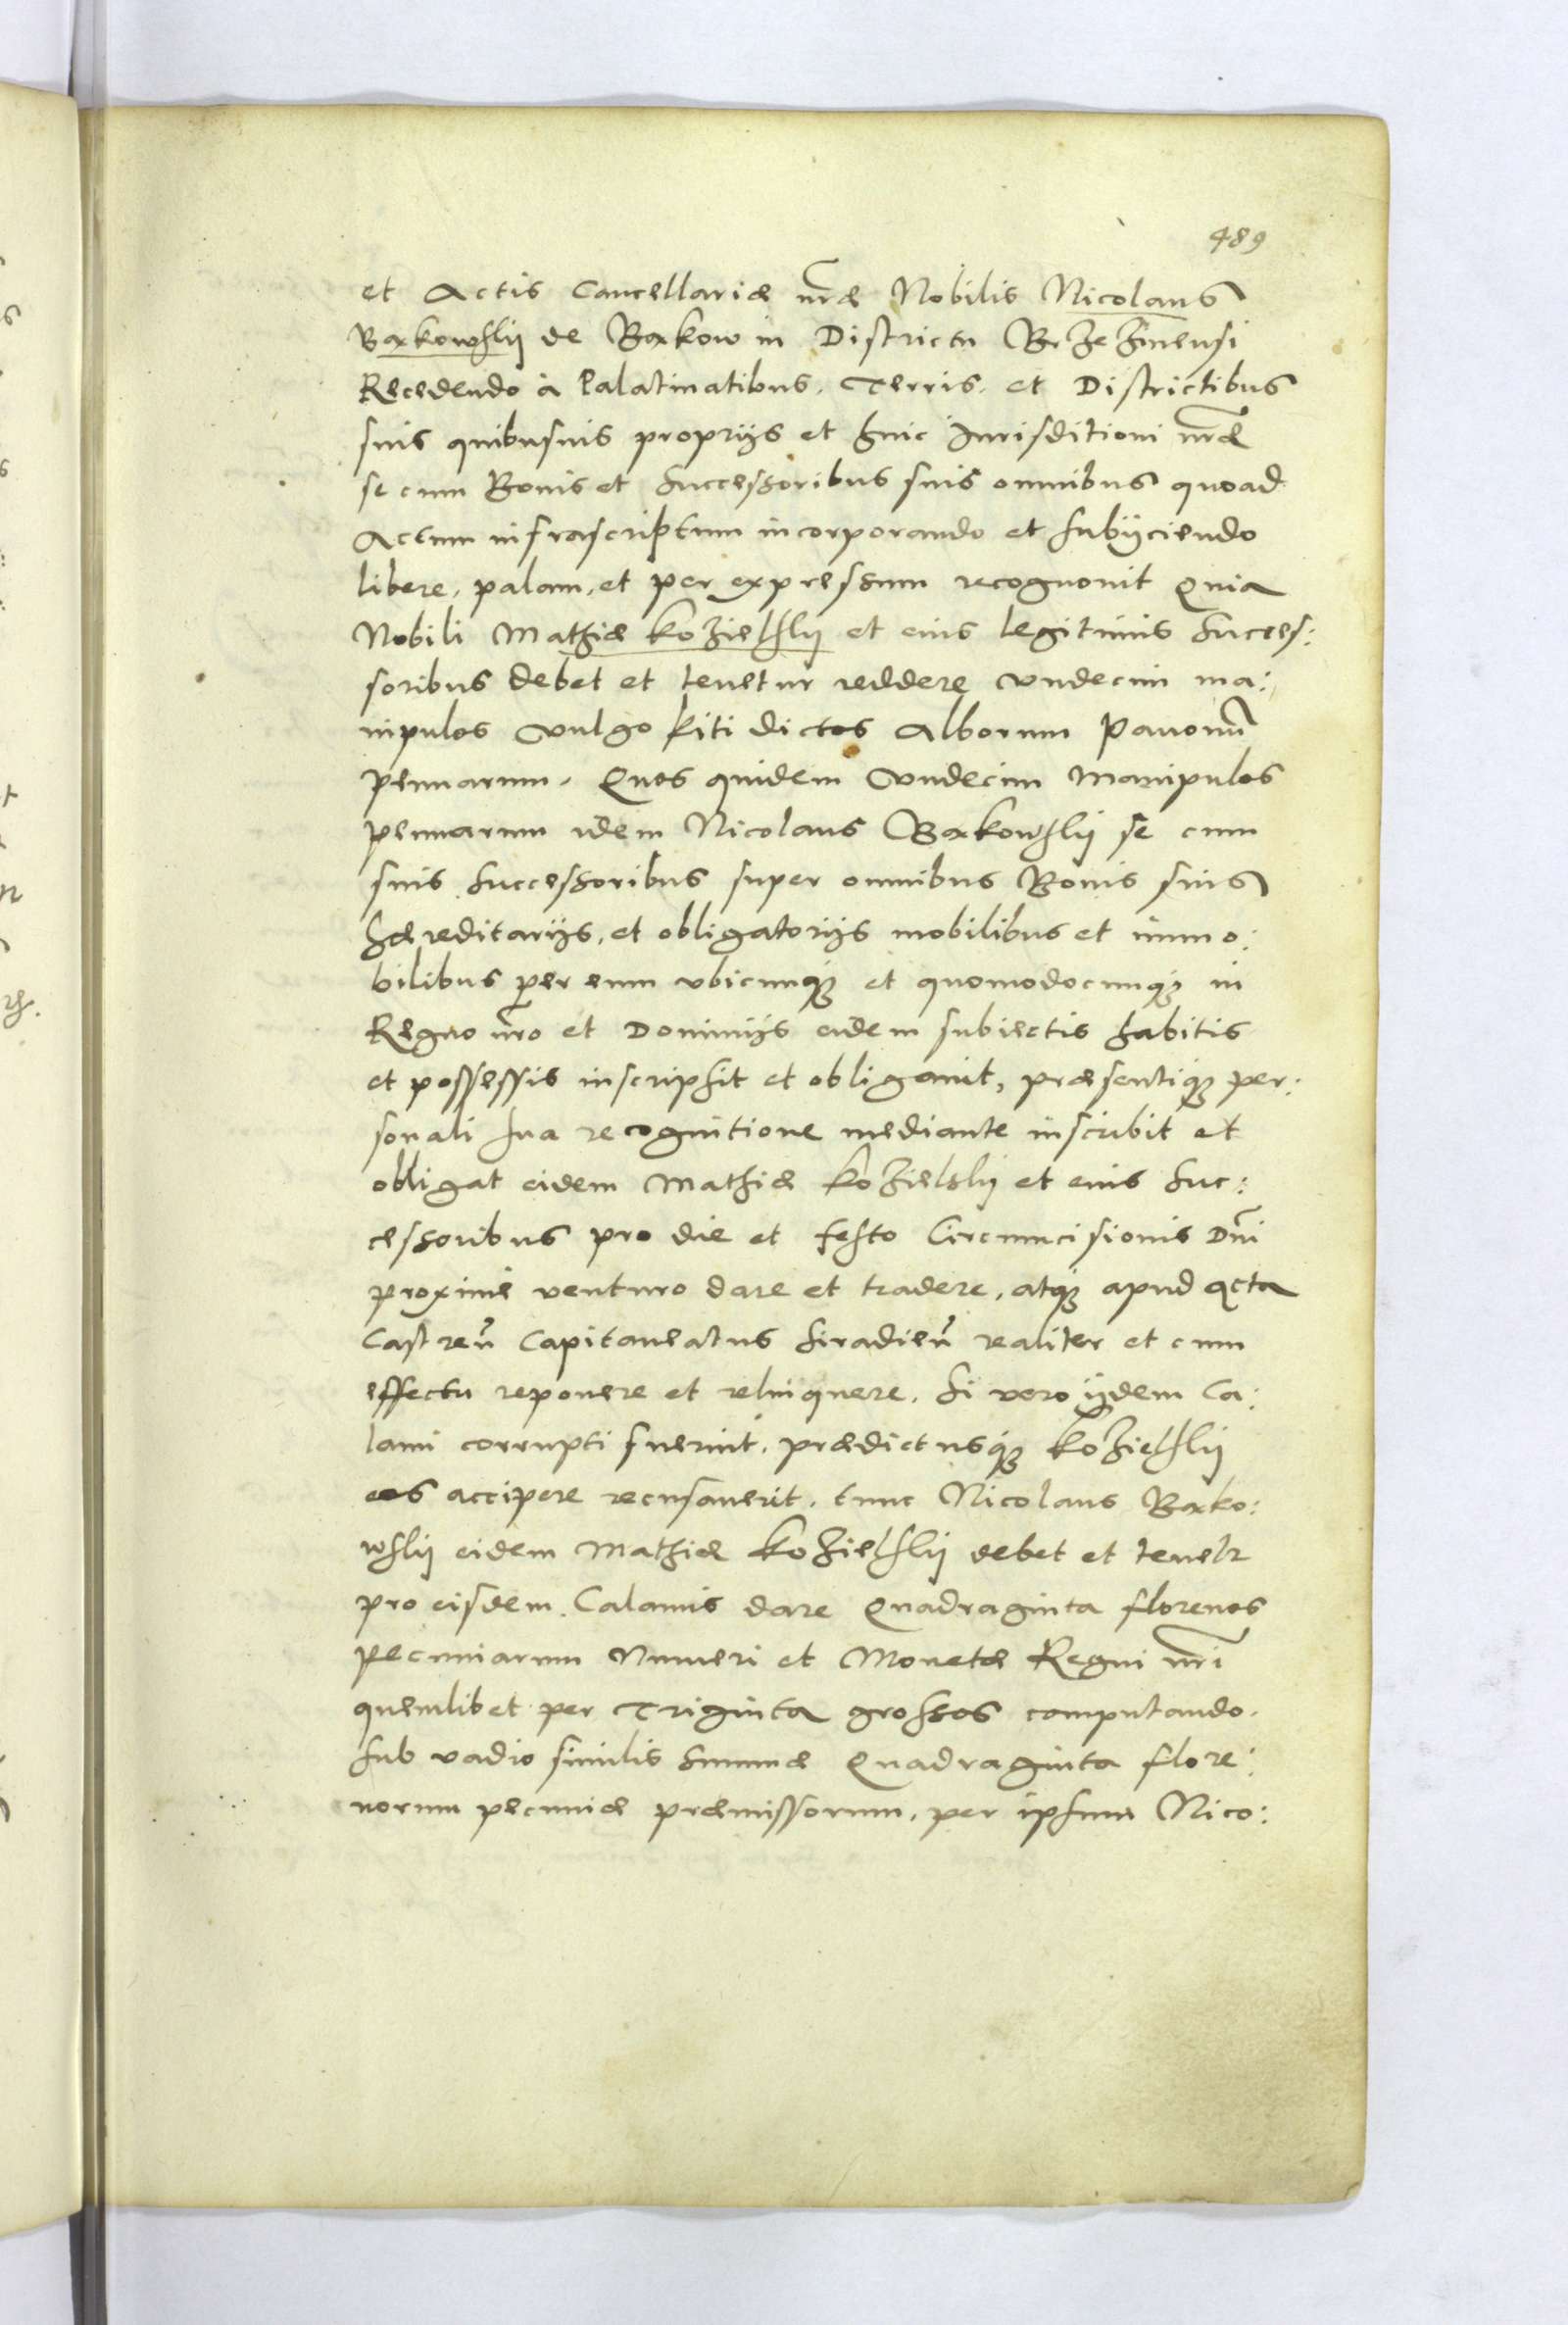 489
et Actis Cancellariæ nr̃æ Nobilis Nicolaus
Bąkowskij de Bąkow in Districtu BrzeZinensi
Recedendo à Palatinatibus. Terris. et Districtibus
suis quibusuis proprijs et huic Jurisditioni nr̃æ
se cum Bonis et Successoribus suis omnibus quoad
Actum infrascriptum incorporando et subijciendo
libere, palam, et per expressum recognouit Quia
Nobili Mathiæ koZielskij et eius legitimis Succes:
soribus debet et tenetur reddere Vndecim ma:
nipulos Vulgo kiti dictos Alborum Pauonũ
pennarum. Quos quidem Vndecim Manipulos
pennarum idem Nicolaus Bąkowskij se cum
suis Successoribus super omnibus Bonis suis
hæreditarijs, et obligatorijs mobilibus et immo:
bilibus per eum vbicunq3 et quomodocunq3 in
Regno nr̃o et Dominijs eidem subiectis habitis
et possessis inscripsit et obligauit, præsentiq3 per:
sonali sua recognitione mediante inscribit et
obligat eidem Mathiæ koZielskij et eius Suc:
cessoribus pro die et festo Circumcisionis Dnĩ
proximè venturo dare et tradere, atq3 apud acta
Castreñ Capitaneatus Siradieñ realiter et cum
effectu reponere et relinquere. Si vero ijdem Ca:
lami corrupti fuerint, prædictusq3 koZielskij
eos accipere recusauerit, tunc Nicolaus Bąko:
wskij eidem Mathiæ koZielskij debet et tenetr
pro eisdem Calamis dare Quadraginta florenos
pecuniarum Numeri et Monetæ Regni nr̃i
quemlibet per Triginta grossos computando.
Sub vadio similis Summæ Quadraginta flore:
norum pecuniæ præmissorum, per ipsum Nico: